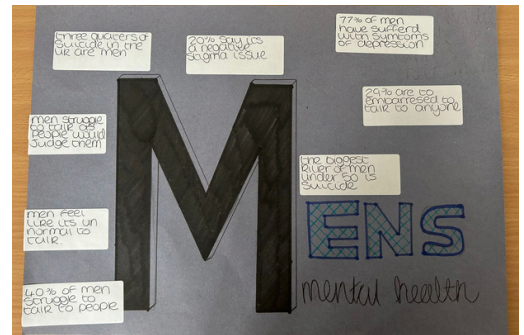 three quaters of
suicide in the
UK are men
20% say its
a negative
stigma issue
77% of men
have sufferd
with symtoms
of depression
29% are to
embarresed to
talk to anyone
men struggle
to talk as
people would
Judge them
the biggest
killer of men
under 50 is
suicide
men feel
like its un
normal to
talk.
40% of men
struggle to
talk to people
MENS
mental health